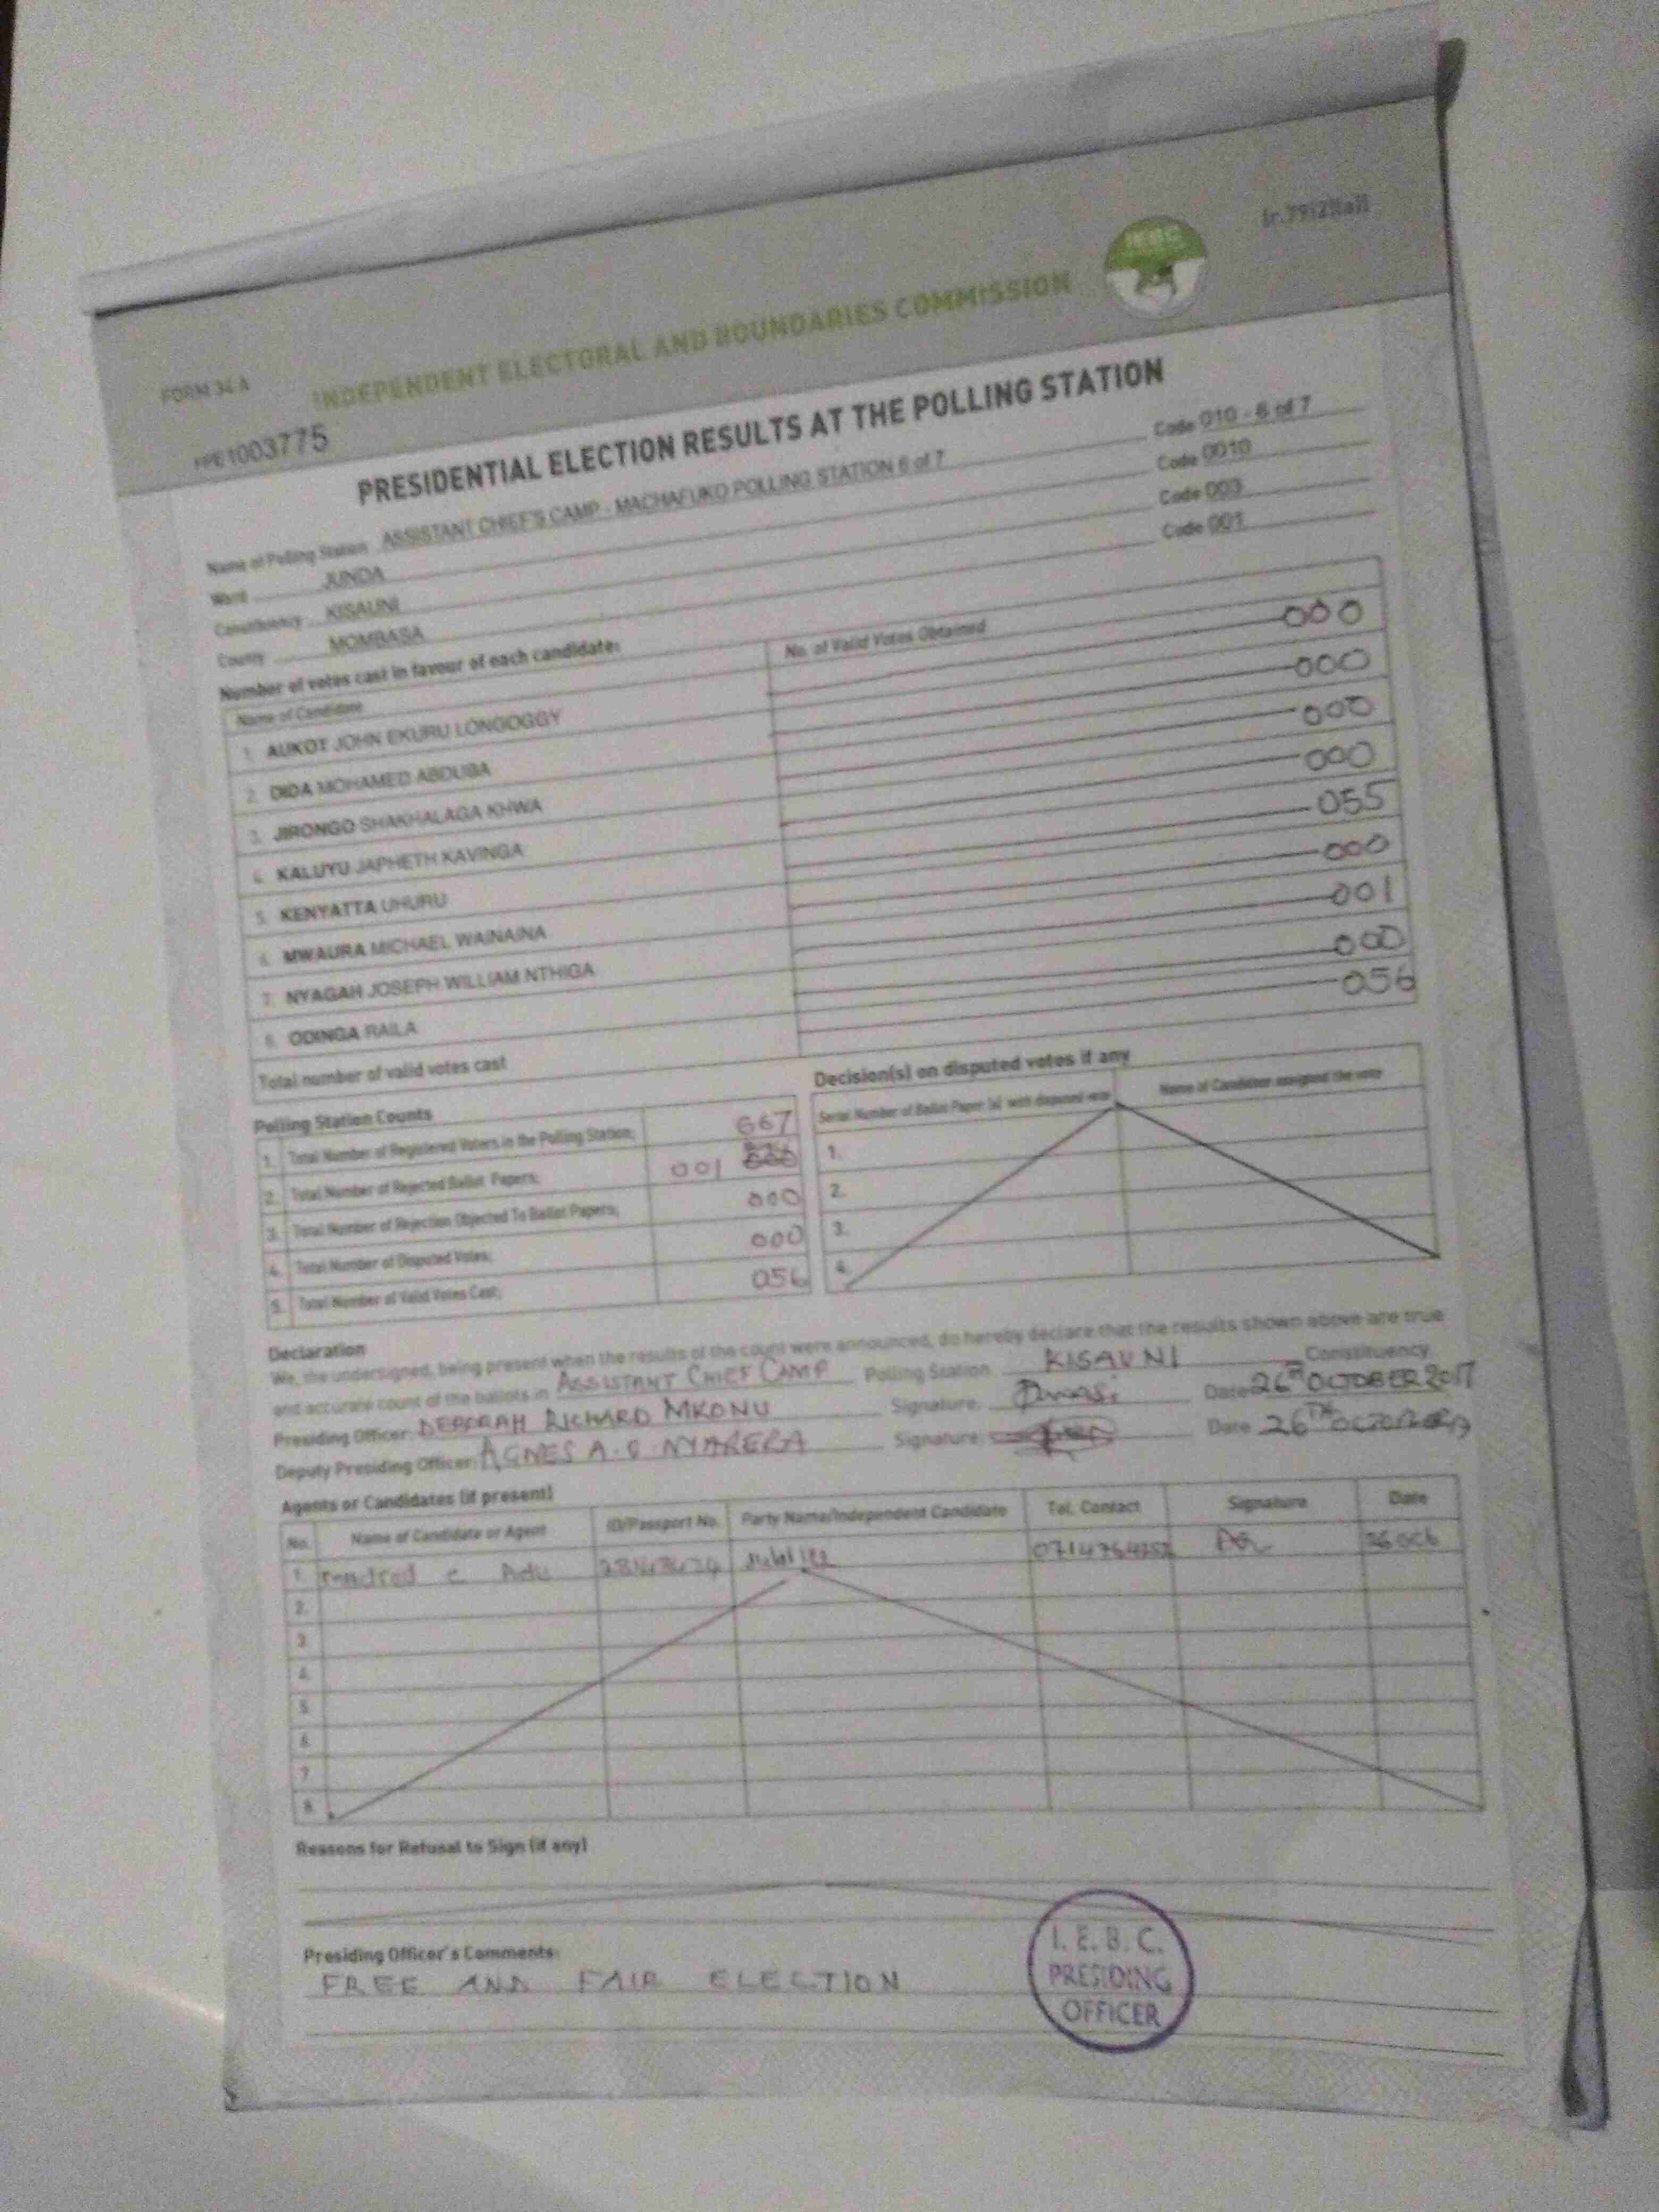 FORM 34 A
INDEPENDENT ELECTORAL AND BOUNDARIES COMMISSION
IEBC
1003775
PRESIDENTIAL ELECTION RESULTS AT THE POLLING STATION
Name of Polling Station ASSISTANT CHIEF'S CAMP - MACHAFUKO POLLING STATION 6 of 7 Code 010 - 6 of 7
Ward JUNDA Code 0010
Constituency KISAUNI Code 003
County MOMBASA Code 001
Number of votes cast in favour of each candidate:
Name of Candidate No. of Valid Votes Obtained
1. AUKOT JOHN EKURU LONGOGGY 000
2. DIDA MOHAMED ABDUBA 000
3. JIRONGO SHAKHALAGA KHWA 000
4. KALUYU JAPHETH KAVINGA 000
5. KENYATTA UHURU 055
6. MWAURA MICHAEL WAINAINA 000
7. NYAGAH JOSEPH WILLIAM NTHIGA 001
8. ODINGA RAILA 000
Total number of valid votes cast 056
Polling Station Counts
1. Total Number of Registered Voters in the Polling Station; 667
2. Total Number of Rejected Ballot Papers; 001
3. Total Number of Rejection Objected To Ballot Papers; 000
4. Total Number of Disputed Votes; 000
5. Total Number of Valid Votes Cast; 056
Decision(s) on disputed votes if any
Serial Number of Ballot Paper (s) with disputed vote Name of Candidate assigned the vote
1.
2.
3.
4.
Declaration
We, the undersigned, being present when the results of the count were announced, do hereby declare that the results shown above are true
and accurate count of the ballots in ASSISTANT CHIEF CAMP Polling Station KISAUNI Constituency
Presiding Officer: DEBORAH RICHARD MKONU Signature: Date 26TH OCTOBER 2017
Deputy Presiding Officer: AGNES A. O. NYARERA Signature: Date 26TH
Agents or Candidates (if present)
No. Name of Candidate or Agent ID/Passport No. Party Name/Independent Candidate Tel. Contact Signature Date
1. Jubilee 26 Oct
2.
3.
4.
5.
6.
7.
8.
Reasons for Refusal to Sign (if any)
Presiding Officer's Comments:
FREE AND FAIR ELECTION
I. E. B. C.
PRESIDING
OFFICER